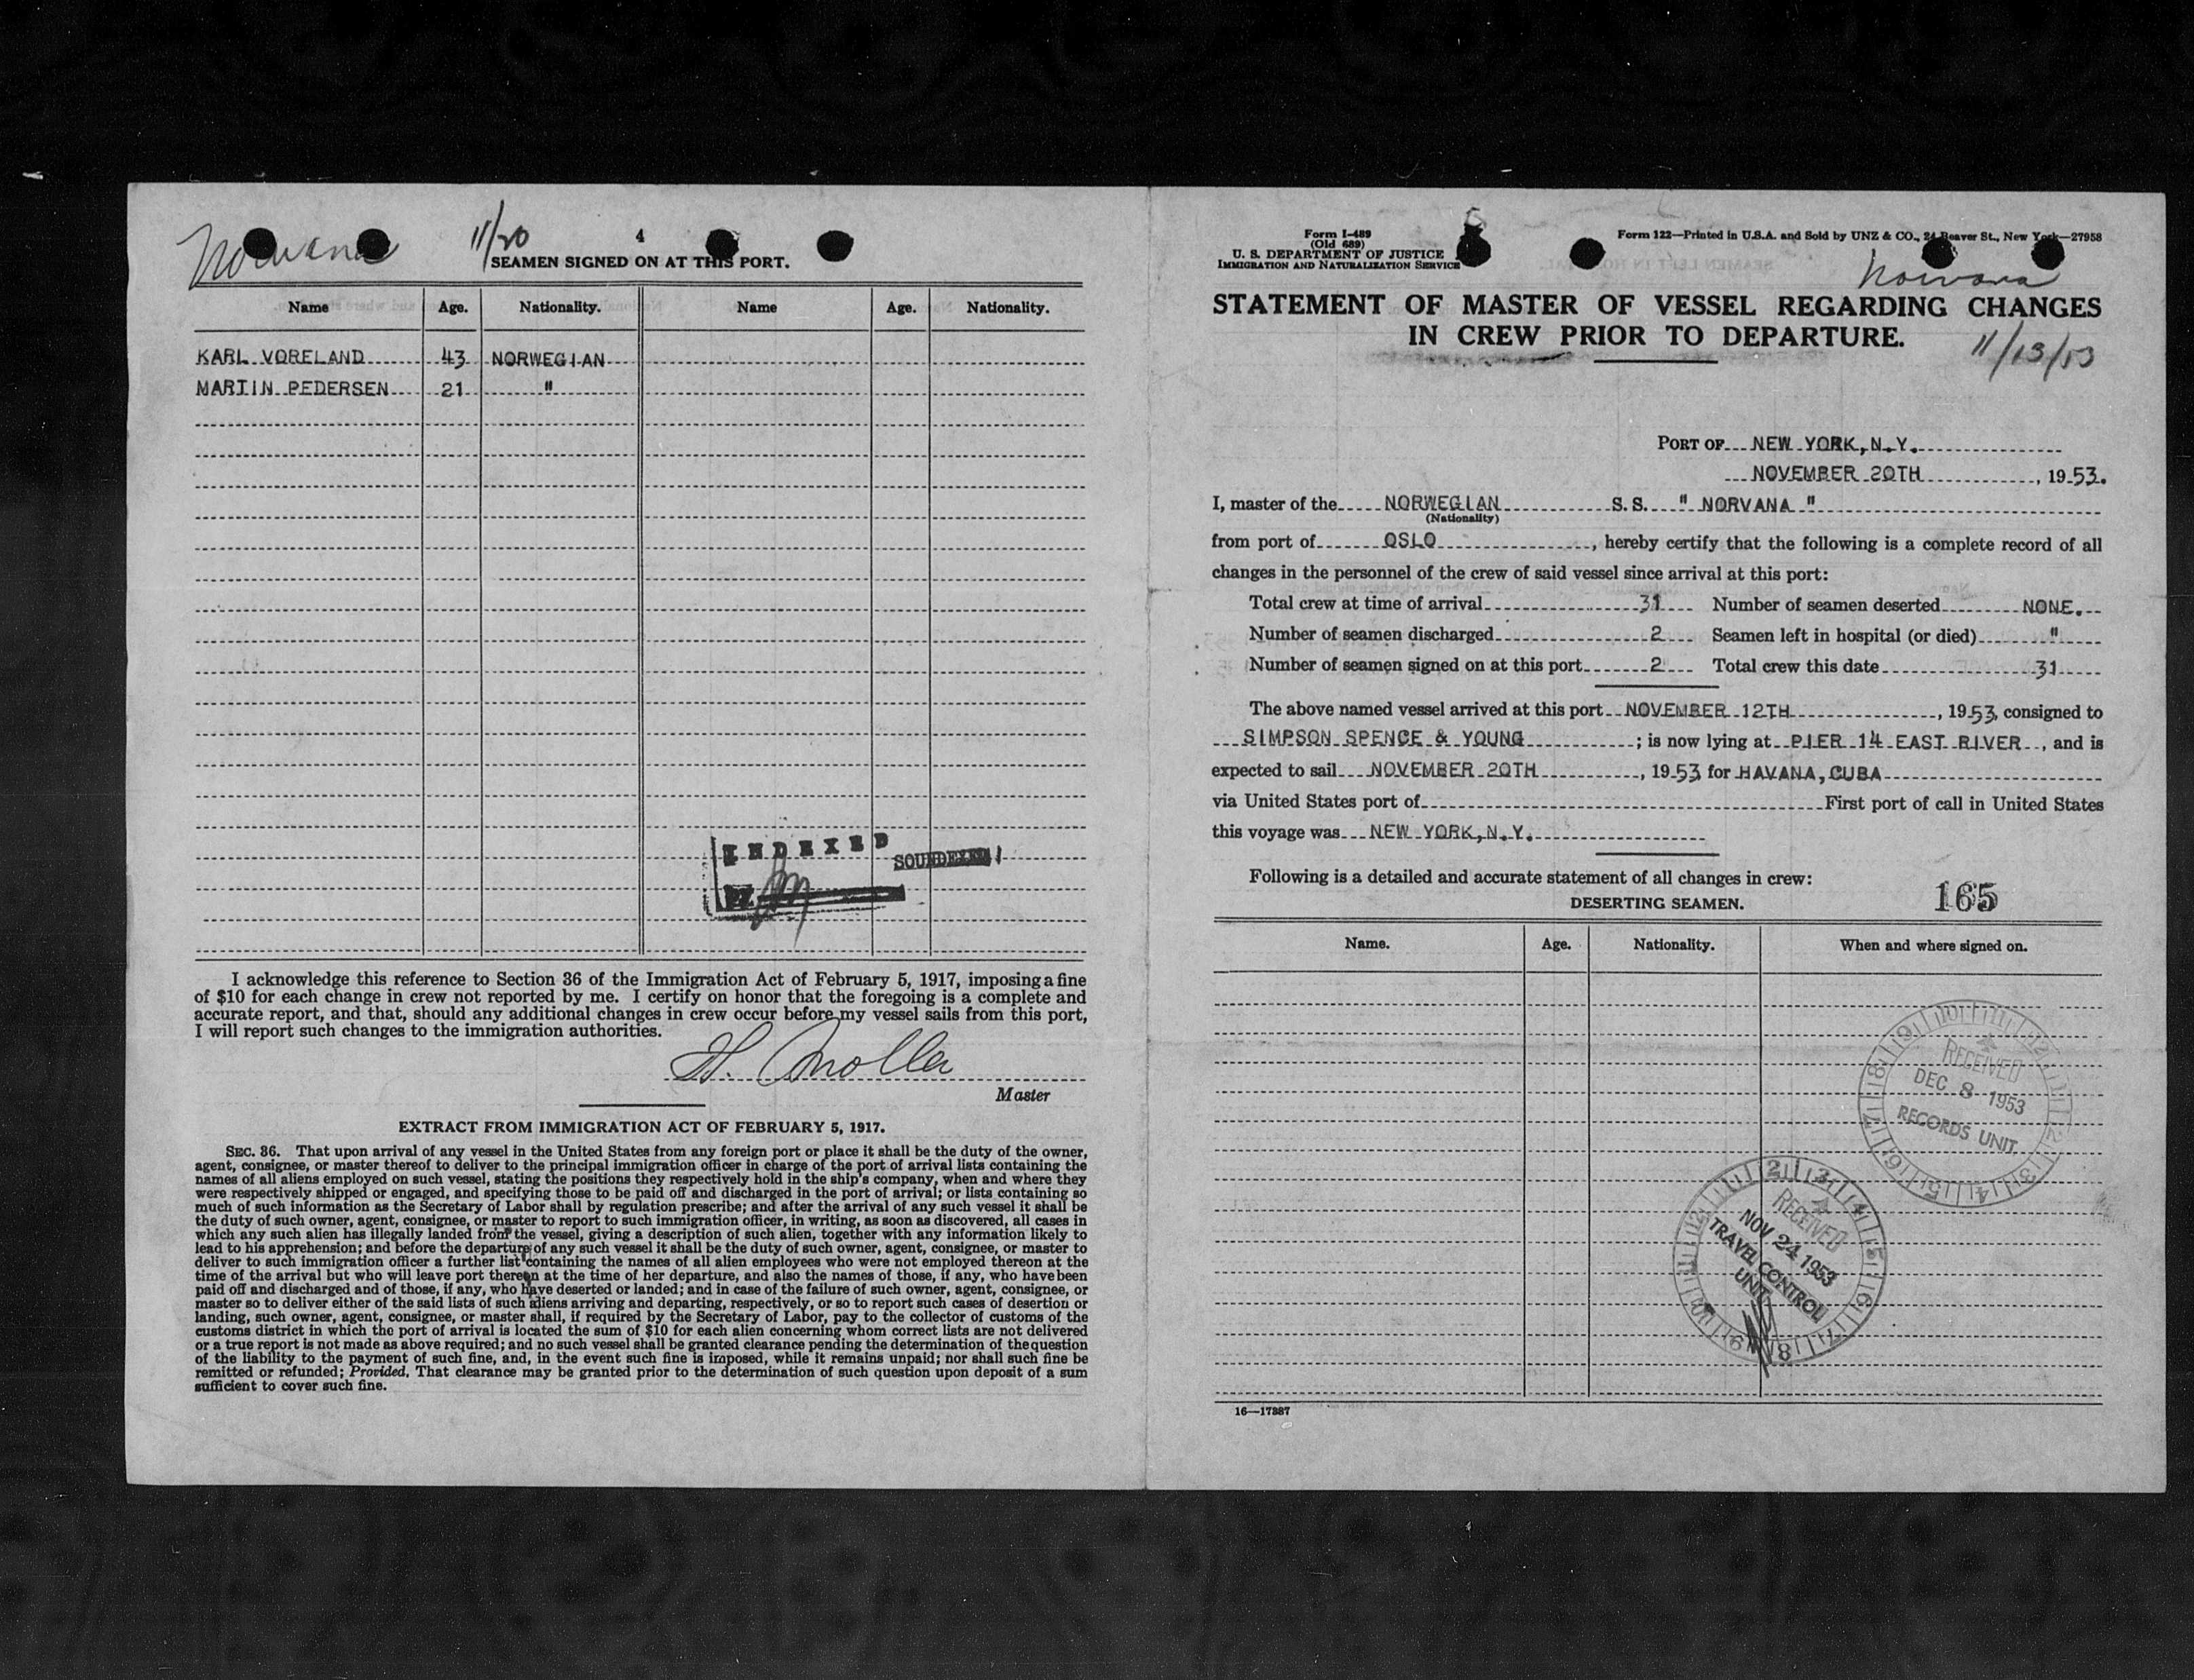 Norvana
11/20
4
SEAMEN SIGNED ON AT THIS PORT.
Name Age. Nationality. Name Age. Nationality.
KARL VORELAND 43 NORWEGIAN
MARTIN PEDERSEN 21 "
INDEXED
SOUNDEXED
I acknowledge this reference to Section 36 of the Immigration Act of February 5, 1917, imposing a fine
of $10 for each change in crew not reported by me. I certify on honor that the foregoing is a complete and
accurate report, and that, should any additional changes in crew occur before my vessel sails from this port,
I will report such changes to the immigration authorities.
H. Moller
Master
EXTRACT FROM IMMIGRATION ACT OF FEBRUARY 5, 1917.
SEC. 36. That upon arrival of any vessel in the United States from any foreign port or place it shall be the duty of the owner,
agent, consignee, or master thereof to deliver to the principal immigration officer in charge of the port of arrival lists containing the
names of all aliens employed on such vessel, stating the positions they respectively hold in the ship's company, when and where they
were respectively shipped or engaged, and specifying those to be paid off and discharged in the port of arrival; or lists containing so
much of such information as the Secretary of Labor shall by regulation prescribe; and after the arrival of any such vessel it shall be
the duty of such owner, agent, consignee, or master to report to such immigration officer, in writing, as soon as discovered, all cases in
which any such alien has illegally landed from the vessel, giving a description of such alien, together with any information likely to
lead to his apprehension; and before the departure of any such vessel it shall be the duty of such owner, agent, consignee, or master to
deliver to such immigration officer a further list containing the names of all alien employees who were not employed thereon at the
time of the arrival but who will leave port thereon at the time of her departure, and also the names of those, if any, who have been
paid off and discharged and of those, if any, who have deserted or landed; and in case of the failure of such owner, agent, consignee, or
master so to deliver either of the said lists of such aliens arriving and departing, respectively, or so to report such cases of desertion or
landing, such owner, agent, consignee, or master shall, if required by the Secretary of Labor, pay to the collector of customs of the
customs district in which the port of arrival is located the sum of $10 for each alien concerning whom correct lists are not delivered
or a true report is not made as above required; and no such vessel shall be granted clearance pending the determination of the question
of the liability to the payment of such fine, and, in the event such fine is imposed, while it remains unpaid; nor shall such fine be
remitted or refunded; Provided, That clearance may be granted prior to the determination of such question upon deposit of a sum
sufficient to cover such fine.
Form I-489
(Old 689)
U. S. DEPARTMENT OF JUSTICE
IMMIGRATION AND NATURALIZATION SERVICE
Form 122—Printed in U.S.A. and Sold by UNZ & CO., 24 Beaver St., New York—27958
Norvana
STATEMENT OF MASTER OF VESSEL REGARDING CHANGES
IN CREW PRIOR TO DEPARTURE.
11/13/53
PORT OF NEW YORK, N.Y.
NOVEMBER 20TH, 1953.
I, master of the NORWEGIAN S. S. " NORVANA "
(Nationality)
from port of OSLO, hereby certify that the following is a complete record of all
changes in the personnel of the crew of said vessel since arrival at this port:
Total crew at time of arrival 31 Number of seamen deserted NONE.
Number of seamen discharged 2 Seamen left in hospital (or died) "
Number of seamen signed on at this port 2 Total crew this date 31
The above named vessel arrived at this port NOVEMBER 12TH, 1953, consigned to
SIMPSON SPENCE & YOUNG; is now lying at PIER 14 EAST RIVER, and is
expected to sail NOVEMBER 20TH, 1953 for HAVANA, CUBA
via United States port of First port of call in United States
this voyage was NEW YORK, N.Y.
Following is a detailed and accurate statement of all changes in crew:
165
DESERTING SEAMEN.
Name. Age. Nationality. When and where signed on.
RECEIVED
DEC 8 1953
RECORDS UNIT
RECEIVED
NOV 24 1953
TRAVEL CONTROL
UNIT
16—17387